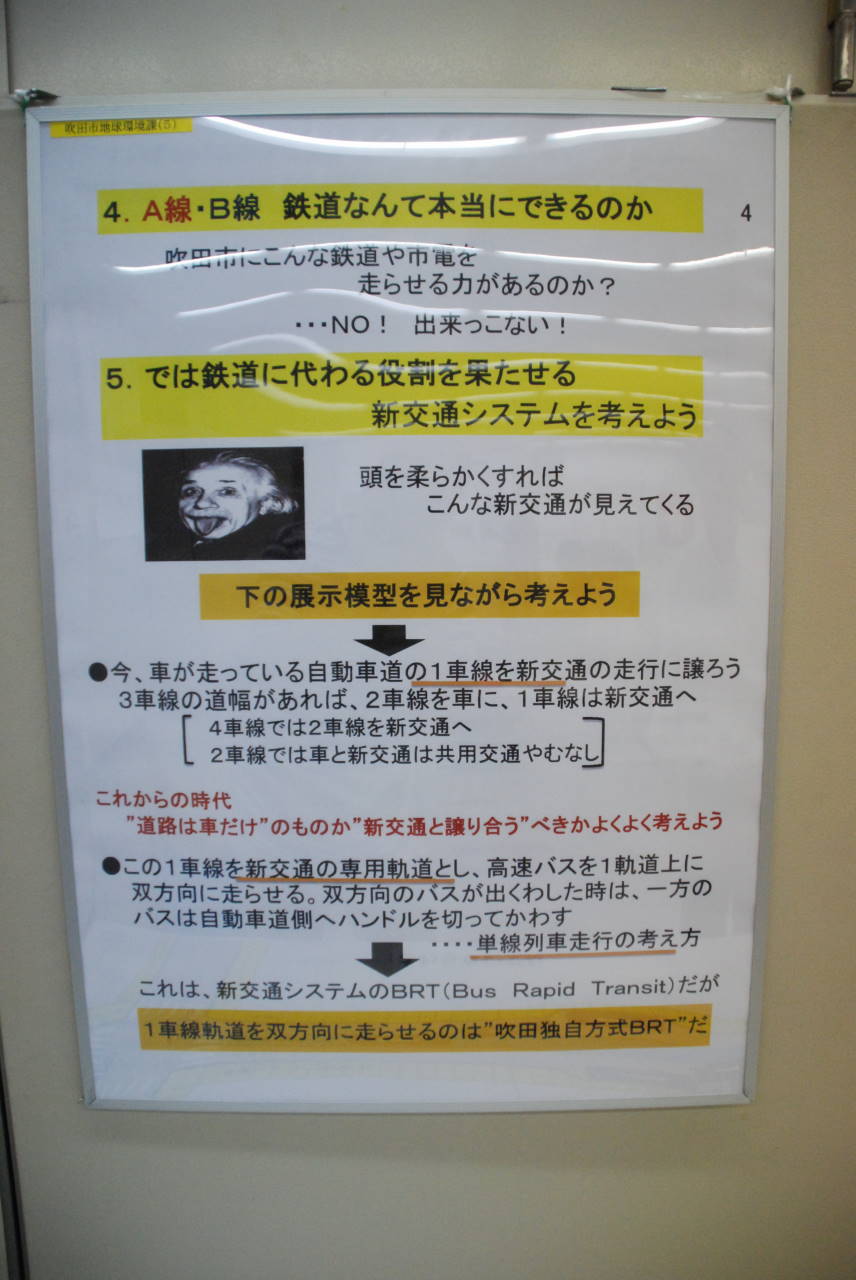 吹田市地球環境課(5)
4. A線・B線　鉄道なんて本当にできるのか
4
吹田市にこんな鉄道や市電を
走らせる力があるのか？
・・・NO！　出来っこない！
5. では鉄道に代わる役割を果たせる
新交通システムを考えよう
頭を柔らかくすれば
こんな新交通が見えてくる
下の展示模型を見ながら考えよう
●今、車が走っている自動車道の1車線を新交通の走行に譲ろう
3車線の道幅があれば、2車線を車に、1車線は新交通へ
4車線では2車線を新交通へ
2車線では車と新交通は共用交通やむなし
これからの時代
”道路は車だけ”のものか”新交通と譲り合う”べきかよくよく考えよう
●この1車線を新交通の専用軌道とし、高速バスを1軌道上に
双方向に走らせる。双方向のバスが出くわした時は、一方の
バスは自動車道側へハンドルを切ってかわす
・・・・単線列車走行の考え方
これは、新交通システムのBRT(Bus Rapid Transit)だが
1車線軌道を双方向に走らせるのは”吹田独自方式BRT”だ